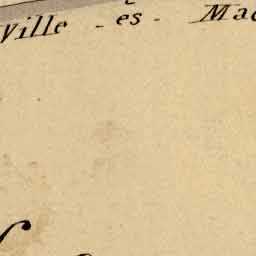 Ville - es - Mac